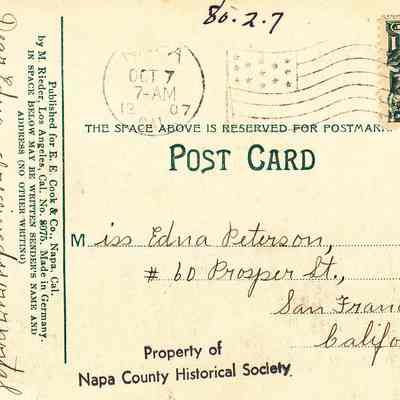 80.2.7
OCT 7
7-AM
07
CAL
THE SPACE ABOVE IS RESERVED FOR POSTMAR
POST CARD
Miss Edna Peterson,
# 60 Prosper St.,
San Fran
Califo
Property of
Napa County Historical Society
Published for E. E. Cook & Co., Napa, Cal.
by M. Rieder, Los Angeles, Cal. No. 8075. Made in Germany.
IN SPACE BELOW MAY BE WRITTEN SENDER'S NAME AND
ADDRESS (NO OTHER WRITING)
Dear Edna